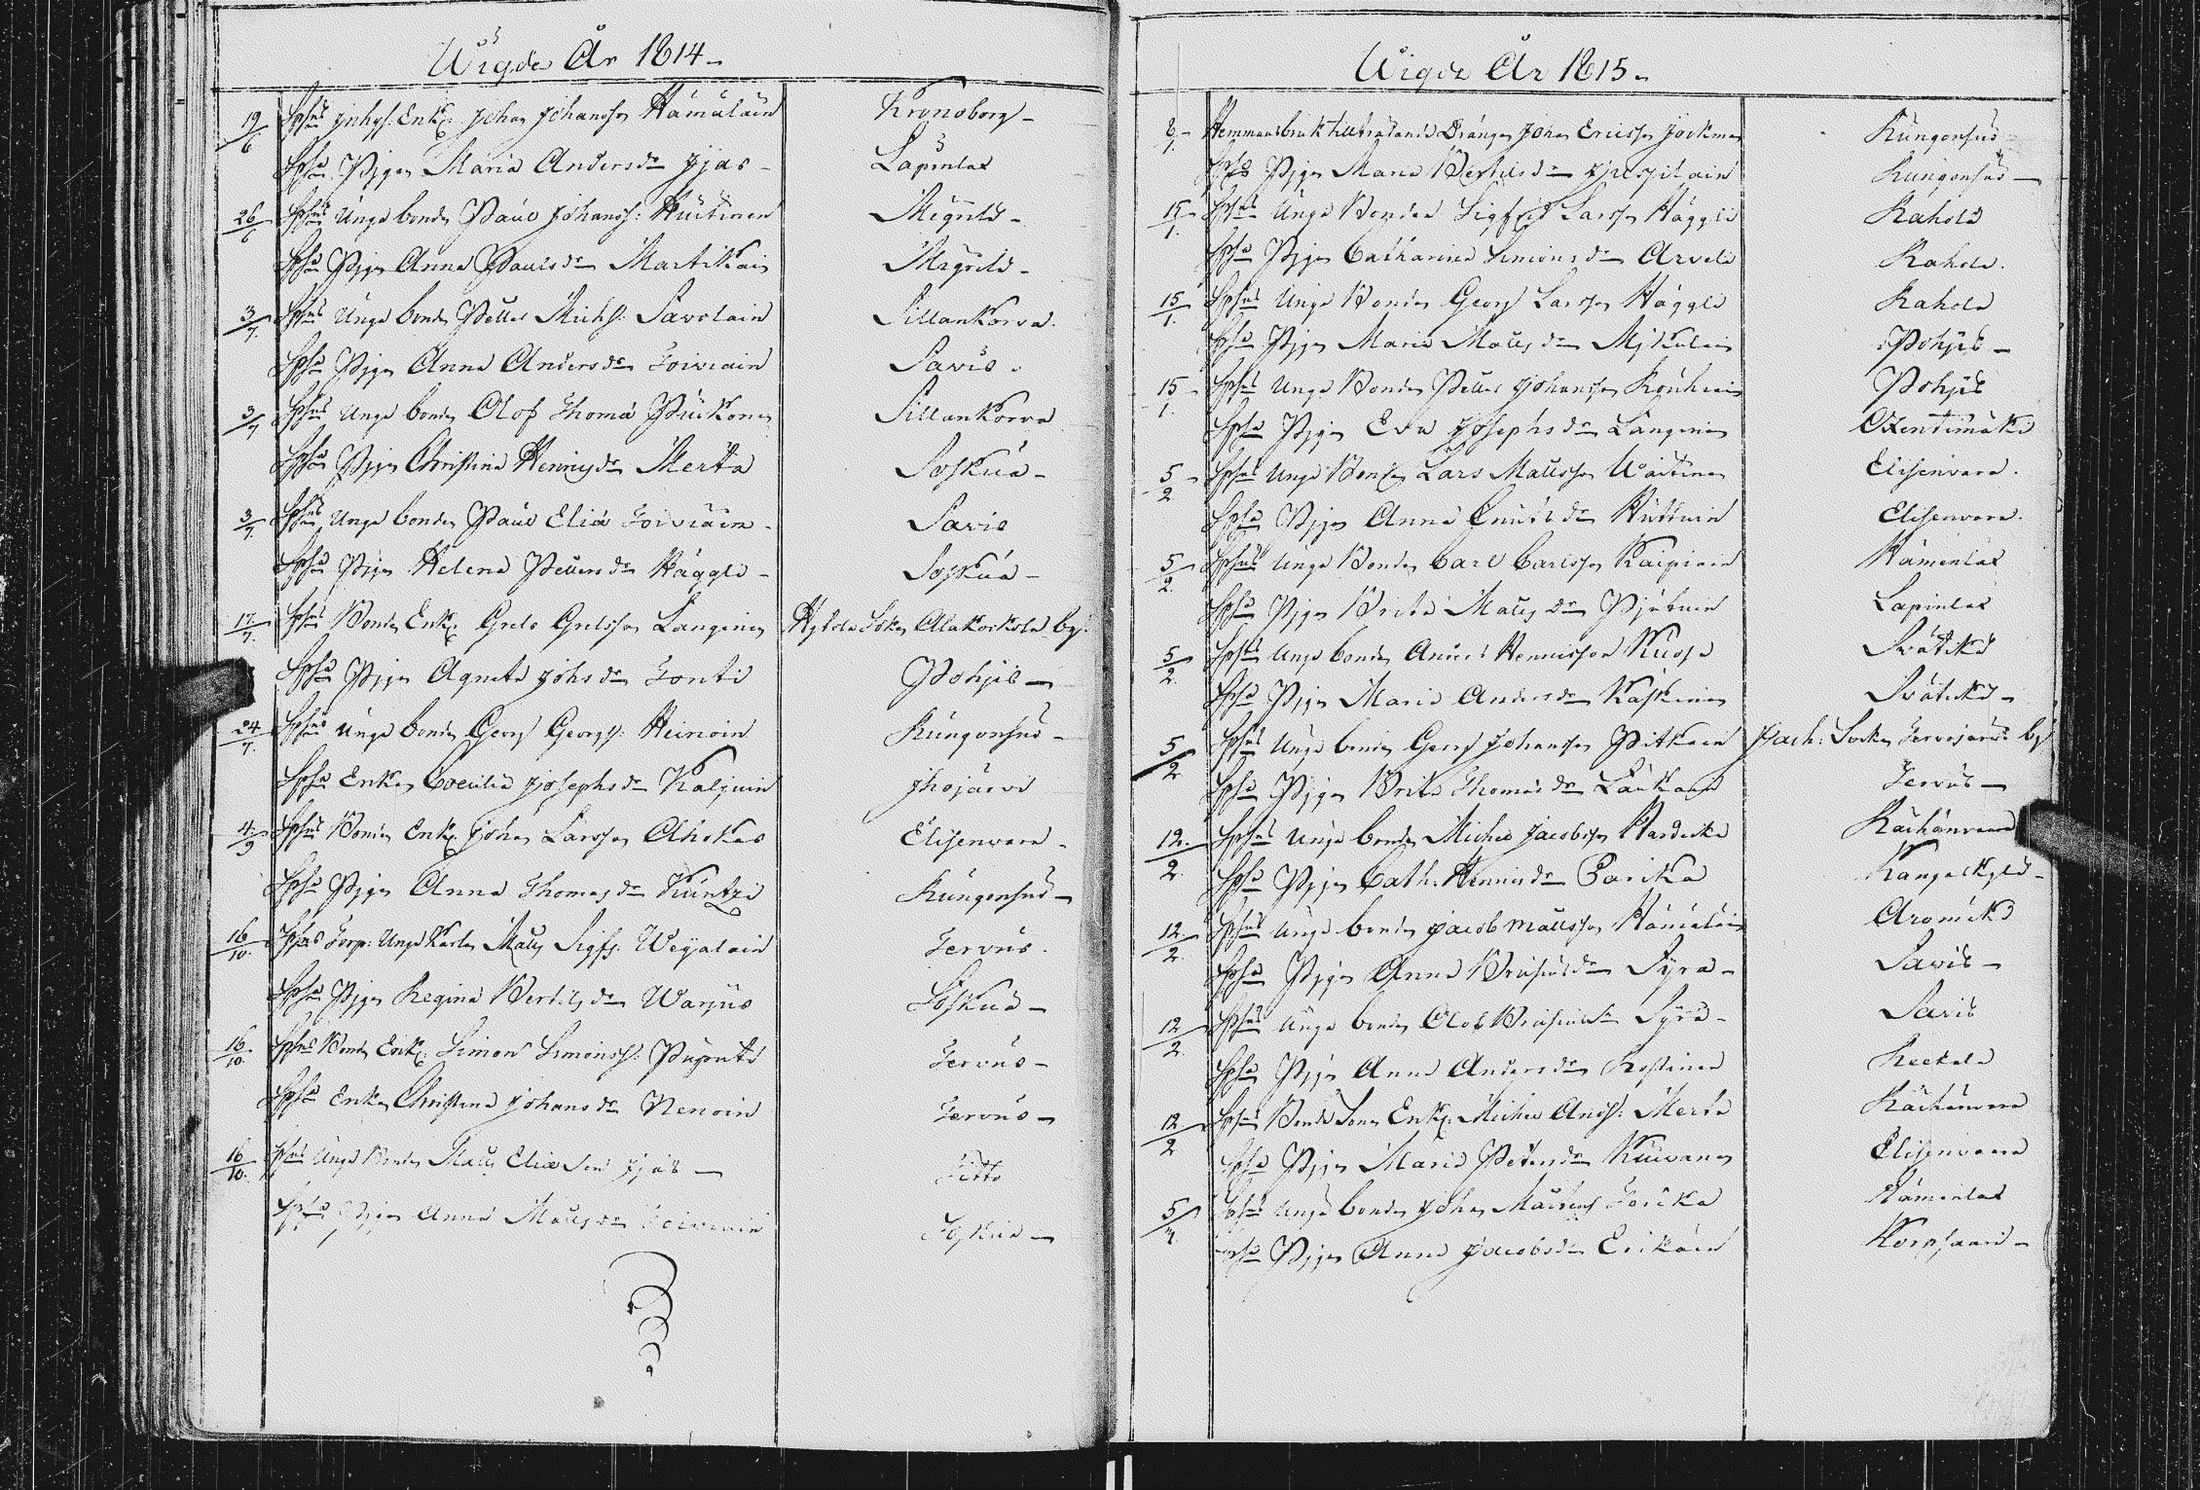 Wigde År 1814
19/6 Sps: Inhys: Enk: Johan Johansson Hämäläin Kronoborg
Spsa Pigan Maria Andersdr Ijäs Lapinlax
26/6 Sps: Unge bonden Paul Johanss: Huitinen Migrilä
Spsa Pigan Anna Paulsdr Martikain Migrilä
3/7 Sps: Unge bonden Petter Michs: Savolain Sillankorva
Spsa Pigan Anna Andersdr Toiviain Saviö
3/7 Sps: Unge bonden Olof Thomæ Puikonen Sillankorva
Spsa Pigan Christina Henrigsdr Merta Soskua
3/7 Sps: Unge bonden Paul Eliæ Toiviain Savio
Spsa Pigan Helena Pettersdr Häggli Soskua
17/7 Sps: Bonden Enk: Grels Grelsson Langinen Hytola Soken Alakockola by
Spsa Pigan Agneta Johsdr Tonti Pohjis
24/7 Sps: Unge bonden Georg Georgss: Heinoin Kungonsuo
Spsa Enkan Coecilia Josephsdr Kaljuin Ihojärvi
4/9 Sps: Bonden Enk: Johan Larsson Ahokas Elisenvara
Spsa Pigan Anna Thomasdr Kuntzi Kungonsuo
16/10 Sps: Torp: Unge Karlen Matts Sigfs: Weijalain Tervus
Spsa Pigan Regina Bertilsdr Warjus Soskua
16/10 Sps: Bonden Enk: Simon Simonss: Tervus
Spsa Enkan Christina Johansdr Nenoin Tervus
16/10 Sps: Unge Bonden Matts Eliæ Son Ijäs Ditto
Spsa Pigan Anna Mattsdr Toiviain Soskua
Wigde År 1815
8/1 Hemmansbruk tilltradande Drängen Johan Ericsson Kungonsuo
Spsa Pigan Maria Bertilsdr Kungonsuo
15/1 Sps: Unge Bonden Sigfrid Larsson Häggli Rahola
Spsa Pigan Catharina Simonsdr Arvela Rahola
15/1 Sps: Unge Bonden Georg Larsson Häggli Rahola
Spsa Pigan Maria Mattsdr Pohjis
15/1 Sps: Unge Bonden Petter Johansson Pohjis
Spsa Pigan Eva Josephsdr Langinen Oxentimäki
5/2 Sps: Unge Bonden Lars Mattsson Waitinen Elisenvara
Spsa Pigan Anna Knutsdr Huttuin Elisenvara
5/2 Sps: Unge Bonden Carl Carlsson Kaipiain Hämenlax
Spsa Pigan Brita Mattsdr Lapinlax
5/2 Sps: Unge bonden Anders Henricsson Kuosa Svätikä
Spsa Pigan Maria Andersdr Käskinen Svätikä
5/2 Sps: Unge bonden Georg Johansson Pitkänen Jach: Socken Tervajärvi by
Spsa Pigan Brita Thomasdr Laukain Tervus
12/2 Sps: Unge bonden Michel Jacobsson Hardecka Räihänvaara
Spsa Pigan Cath: Henricsdr Parika Kangaskylä
12/2 Sps: Unge bonden Jacob Mattsson Hämäläin Aromäki
Spsa Pigan Anna Syra Savis
12/2 Sps: Unge bonden Olof Syrä Savis
Spsa Pigan Anna Andersdr Kostiain Reckola
12/2 Sps: Bonde Sonen Enk: Michel Andss: Merta Räihänvaara
Spsa Pigan Maria Petersdr Kuivanen Elisenvaara
5/4 Sps: Unge bonden Johan Torikka Hämenlax
Spsa Pigan Anna Jacobsdr Erikäin Korpsaari